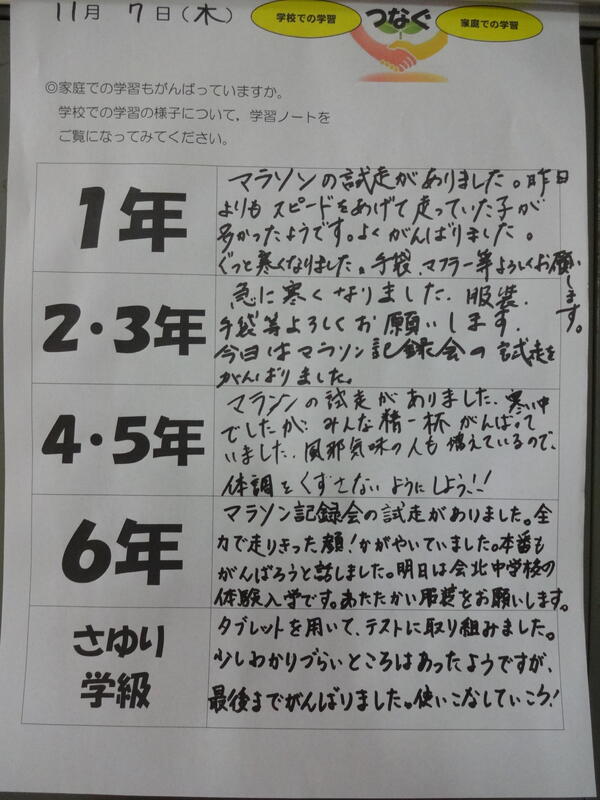 11月 7日(木)
学校での学習
つなぐ
家庭での学習
◎家庭での学習もがんばっていますか。
学校での学習の様子について,学習ノートを
ご覧になってみてください。
1年
マラソンの試走がありました。昨日
よりもスピードをあげて走っていた子が
多かったようです。よくがんばりました。
ぐっと寒くなりました。手袋、マフラー等よろしくお願いします。
2・3年
急に寒くなりました。服装、
手袋等よろしくお願いします。
今日はマラソン記録会の試走を
がんばりました。
4・5年
マラソンの試走がありました。寒い中
でしたが、みんな精一杯がんばって
いました。風邪気味の人も増えているので、
体調をくずさないようにしよう!!
6年
マラソン記録会の試走がありました。全
力で走りきった顔!かがやいていました。本番も
がんばろうと話しました。明日は会北中学校の
体験入学です。あたたかい服装をお願いします。
さゆり
学級
タブレットを用いて、テストに取り組みました。
少しわかりづらいところはあったようですが、
最後までがんばりました。使いこなしていこう!